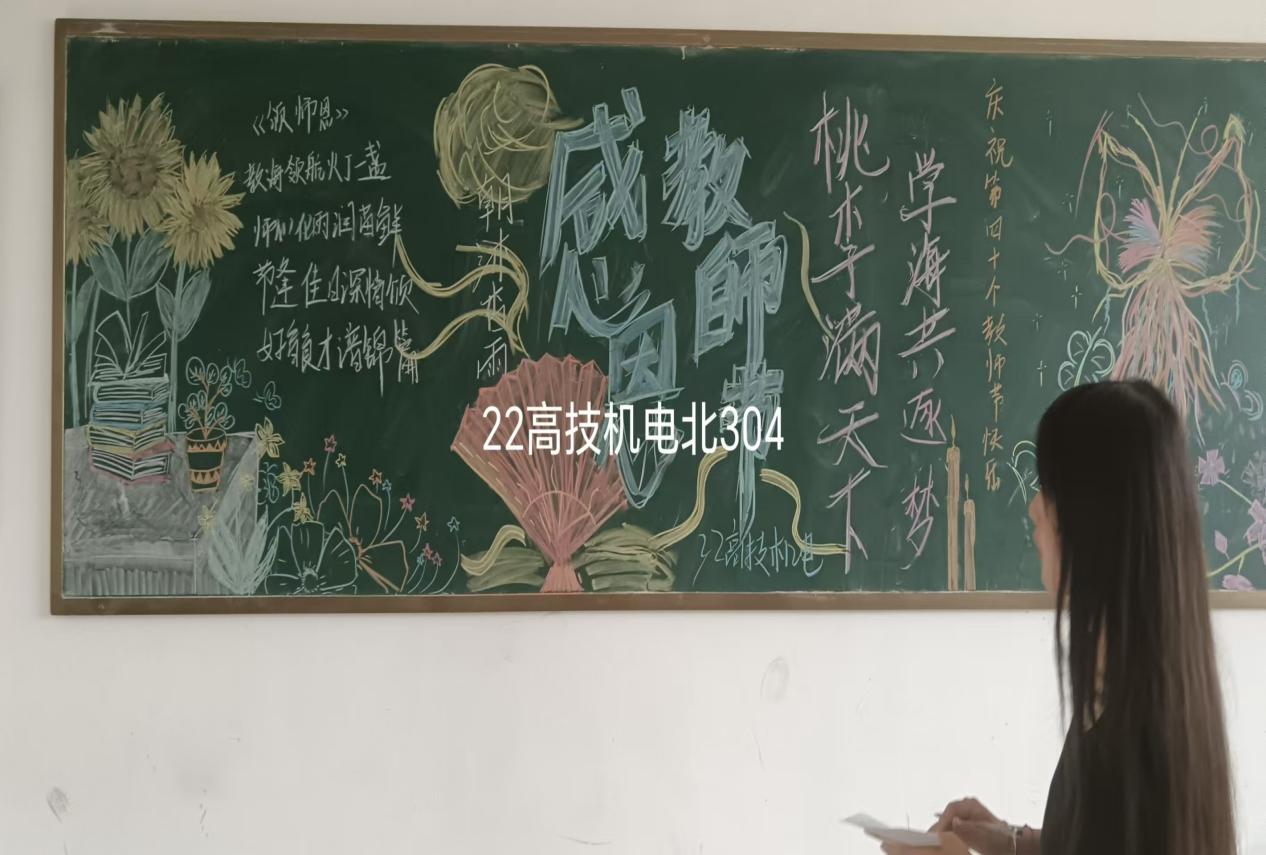 《颂师恩》
教海领航灯一盏
师化雨润苗鲜
节逢佳日深情颂
好育良才谱锦篇
朝雨
感恩
教師节
桃李满天下
学海共逐梦
庆祝第四十个教师节快乐
22高技机电
22高技机电北304